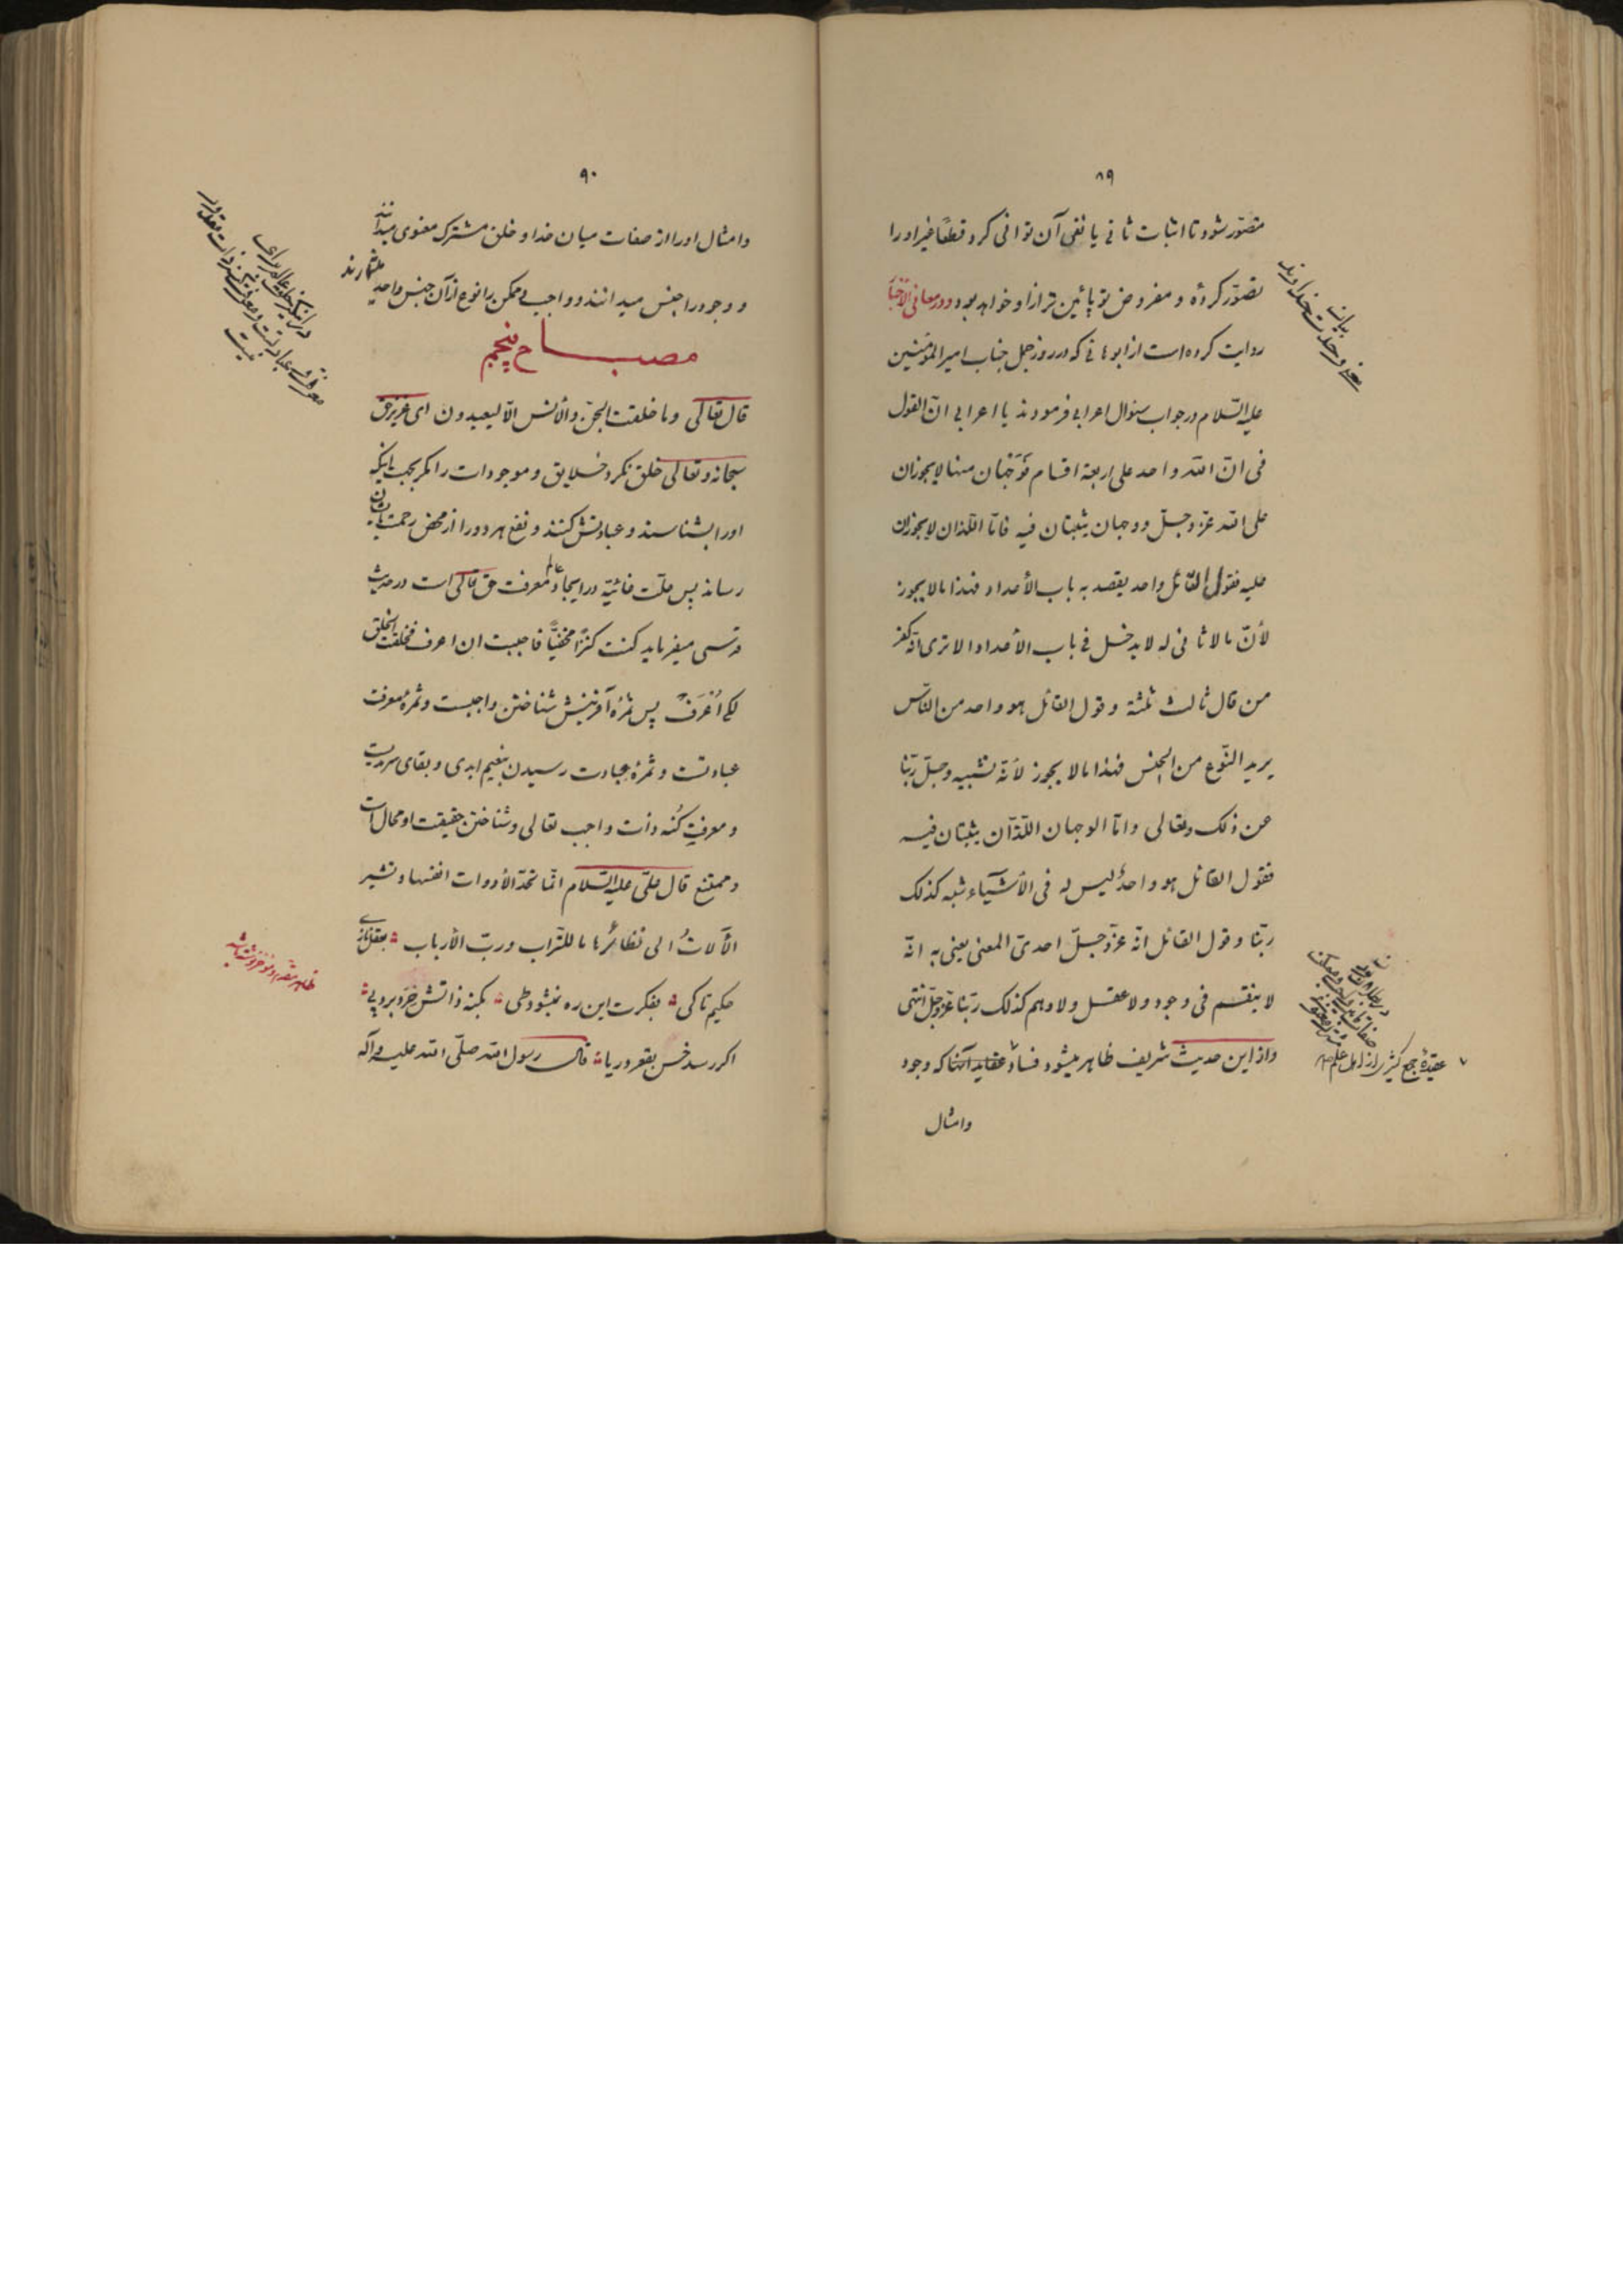 ۸۹
متصوّر شود تا اثبات ثانی یا نفی آن توانی کرد قطعاً غیر او را
تصوّر کردهٔ و مفروض تو پائین تر از او خواهد بود و در معانی الأخبار
روایت کرده است از ابو هانی که در روز جمل جناب امیر المؤمنین
علیه السّلام در جواب سئوال اعرابی فرمودند یا اعرابی انّ القول
فی انّ اللّه واحد علی اربعة اقسام فوجهان منها لا یجوزان
علی اللّه عزّ و جلّ و وجهان یثبتان فیه فامّا اللّذان لا یجوزان
علیه فقول القائل واحد یقصد به باب الأعداد فهذا ما لا یجوز
لأنّ ما لا ثانی له لا یدخل فی باب الأعداد الا تری انّه کفر
من قال ثالث ثلثة و قول القائل هو واحد من النّاس
یرید النّوع من الجنس فهذا ما لا یجوز لأنّه تشبیه و جلّ ربّنا
عن ذلک و تعالی و امّا الوجهان اللّذان یثبتان فیه
فقول القائل هو واحدٌ لیس له فی الأشیاء شبه کذلک
ربّنا و قول القائل انّه عزّ و جلّ احدیّ المعنی یعنی به انّه
لا ینقسم فی وجود و لا عقل و لا وهم کذلک ربّنا عزّ و جلّ انتهی
و از این حدیث شریف ظاهر میشود فساد عقاید آنها که وجود
و امثال
بیان
معنی وحدت خداوند
عقیدهٔ جمع کثیری از اهل علم
۹۰
و امثال او را از صفات میان خدا و خلق مشترک معنوی میدانند
و وجود را جنس میدانند و واجب و ممکن را نوع از آن جنس واحد
میشمارند
مصباح پنجم
قال تعالی و ما خلقت الجنّ و الأنس الّا لیعبدون ای عزیز حق
سبحانه و تعالی خلق نکرد خلایق و موجودات را مگر بجهت اینکه
او را بشناسند و عبادتش کنند و نفع هر دو را از محض رحمت بایشان
رساند پس علّت غائیّه در ایجاد عالم معرفت حق تعالی است در حدیث
قدسی میفرماید کنت کنزاً مخفیّاً فاحببت ان اعرف فخلقت الخلق
لکی اُعْرَفَ پس ثمرهٔ آفرینش شناختن واجبست و ثمرهٔ معرفت
عبادتست و ثمرهٔ عبادت رسیدن بنعیم ابدی و بقای سرمدیست
و معرفت کُنه ذات واجب تعالی و شناختن حقیقت او محال است
و ممتنع قال علی علیه السّلام انّما تحدّ الأدوات انفسها و تشیر
الآلاتُ الی نظائرها ما للتّراب و ربّ الأرباب بعقل نازی
حکیم تا کی بفکرت این ره نمیشود طی بکنه ذاتش خرد برد پی
اگر رسد خس بقعر دریا قال رسول اللّه صلّی اللّه علیه و آله